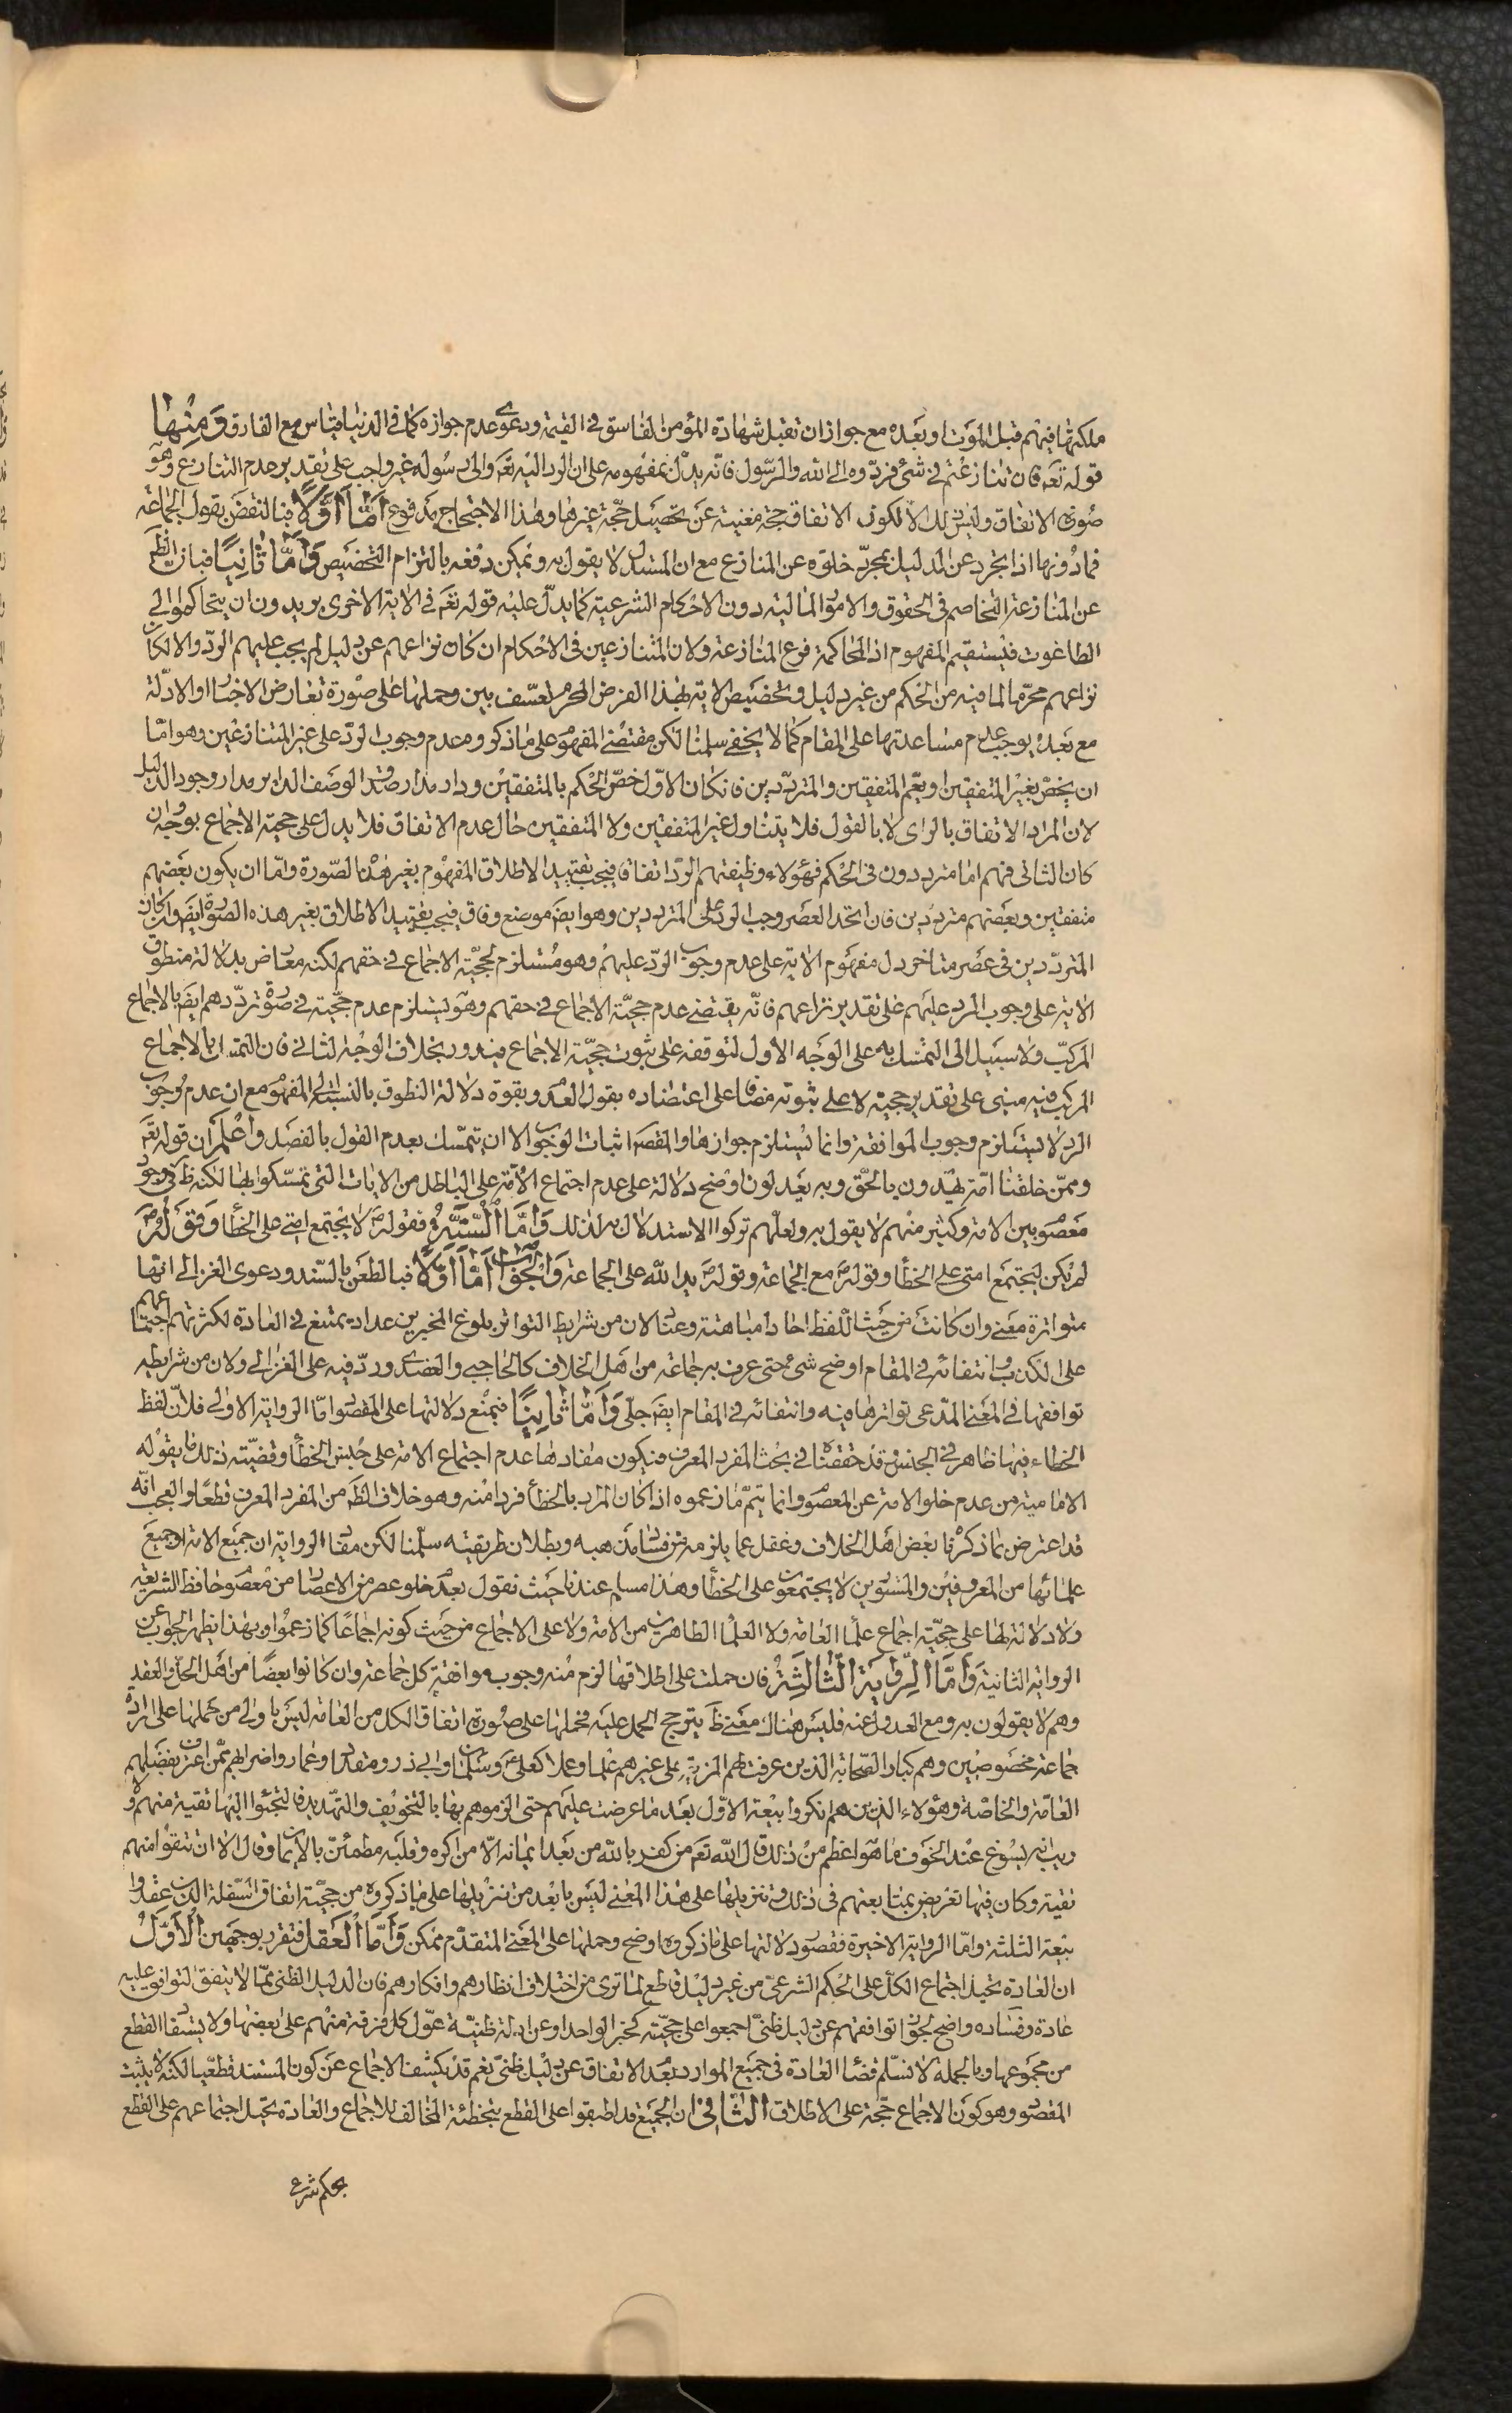 ملكتها فيهم قبل الموت او بعده مع جواز ان تقبل شهادة المؤمن الفاسق في القيمة ودعوى عدم جوازه كما في الدنيا قياس مع الفارق ومنها
قوله تعم فان تنازعتم في شئ فردّوه الى الله والرّسول فانّه يدلّ بمفهومه على ان الرد اليه تعم والى رسوله غير واجب على تقدير عدم التنازع وهو
صورة الاتفاق وليس ذلك الا لكون الاتفاق حجة مغنية عن تحصيل حجّة غيرها وهذا الاحتجاج مدفوع امّا اوّلا فبالنقض بقول الجماعة
فمادونها اذا تجرد عن الدليل بمجرّد خلوّه عن المنازع مع ان المستدل لا يقول به ويمكن دفعه بالتزام التخصيص وامّا ثانيا فبان الظم
عن المنازعة التخاصم في الحقوق والامور المالية دون الاحكام الشرعية كما يدلّ عليه قوله تعم في الاية الاخرى يريدون ان يتحاكموا الى
الطاغوت فيستقيم المفهوم اذ المحاكمة فرع المنازعة ولان المتنازعين في الاحكام ان كان نزاعهم عن دليل لم يجب عليهم الردّ والا لكان
نزاعهم محرّما لما فيه من الحكم من غير دليل وتخصيص الاية بهذا الفرض المحرم تعسّف بين وحملها على صورة تعارض الاخبار او الادلّة
مع بعده يوجب عدم مساعدتها على المقام كما لا يخفى سلمنا لكن مقتضى المفهوم على ما ذكروه عدم وجوب الردّ على غير المتنازعين وهو امّا
ان يخصّ بغير المتفقين او يعّم المتفقين والمتردّدين فان كان الاوّل خصّ الحكم بالمتفقين ودار مدار صدق الوصف الداير مدار وجود الدليل
لان المراد الاتفاق بالراى لا بالقول فلا يتناول غير المتفقين ولا المتفقين حال عدم الاتفاق فلا يدل على حجية الاجماع بوجه وان
كان الثانى فهم اما مترددون في الحكم فهؤلاء وظيفتهم الردّ اتفاقا فيجب تقييد الاطلاق المفهوم بغير هذه الصّورة وامّا ان يكون بعضهم
متفقين وبعضهم مترددين فان اتحد العصر وجب الرد على المترددين وهو ايضم موضع وفاق فيجب تقييد الاطلاق بغير هذه الصورة ايضم وان كان
المتردّدين في عصر متاخر دل مفهوم الاية على عدم وجوب الردّ عليهم وهو مستلزم لحجيّة الاجماع في حقهم لكنه معارض بدلالة منطوق
الاية على وجوب الرد عليهم على تقدير نزاعهم فانّه يقتضى عدم حجيّة الاجماع في حقهم وهو يستلزم عدم حجّيته في صورة تردّدهم ايضم بالاجماع
المركّب ولا سبيل الى التمسّك به على الوجه الاول لتوقفه على ثبوت حجيّة الاجماع فيدور بخلاف الوجه الثانى فان التمسك بالاجماع
المركب فيه مبنى على تقدير حجيته لا على ثبوته مضافا على اعتضاده بقول العدم وبقوة دلالة المنطوق بالنسبة الى المفهوم مع ان عدم وجوب
الرد لا يستلزم وجوب الموافقة وانما يستلزم جوازها والمقصم اثبات الوجوب الا ان يتمسّك بعدم القول بالفصل واعلم ان قوله تعم
وممّن خلقنا امّة يهدون بالحّق وبه يعدلون اوضح دلالة على عدم اجتماع الامّة على الباطل من الايات التى تمسّكوا بها لكنه ظ في وجود
معصوم بين الامة وكثير منهم لا يقول به ولعلّهم تركوا الاستدلال به لذلك وامّا السّنّة فقوله ص لا يجتمع امتى على الخطأ وقوله ص
لم يكن ليجتمع امتى على الخطأ وقوله ص مع الجماعة وقوله ص يد الله على الجماعة والجواب امّا اوّلا فبالطعن بالسّند ودعوى الغزالى انها
متواترة معنى وان كانت من حيث اللّفظ احادا مباهتة وعناد لان من شرايط التواتر بلوغ المخبرين عدادا يمتنع في العادة لكثرتهم اجتماعهم
على الكذب وانتفائه في المقام اوضح شئ حتى عرف به جماعة من اهل الخلاف كالحاجبى والعضدى وردّ فيه على الغزالى ولان من شرايطه
توافقها في المعنى المدّعى تواترها فيه وانتفائه في المقام ايضم جلىّ وامّا ثانيا فبمنع دلالتها على المقصود امّا الرواية الاولى فلانّ لفظ
الخطاء فيها ظاهر في الجنس وقد حققنا في بحث المفرد المعرف فيكون مفادها عدم اجتماع الامة على جنس الخطأ وقضيّته ذلك ما يقوله
الامامية من عدم خلو الامة عن المعصوم وانما يتمّ ما زعموه اذا كان المراد بالخطأ فردا منه وهو خلاف الظم من المفرد المعرف قطعًا والعجب انّه
قد اعترض بما ذكرنا بعض اهل الخلاف وغفل عما يلزمه من فساد مذهبه وبطلان طريقته سلّمنا لكن مفاد الرواية ان جميع الامة او جميع
علمائها من المعروفين والمستورين لا يجتمعون على الخطأ وهذا مسلم عندنا حيث نقول بعدم خلو عصر من الاعصار من معصوم حافظ للشريعة
ولا دلالة لها على حجيّة اجماع علماء العامة ولا العلماء الظاهرين من الامة ولا على الاجماع من حيث كونه اجماعًا كما زعموا وبهذا يظهر الجواب عن
الرواية الثانية وامّا الرّواية الثالثة فان حملت على اطلاقها لزم منه وجوب موافقة كل جماعة وان كانوا بعضًا من اهل الحل والعقد
وهم لا يقولون به ومع العدول عنه فليس هناك معنى ظ يترجح الحمل عليه فحملها على صورة اتفاق الكل من العامة ليس باولى من حملها على ارادة
جماعة مخصوصين وهم كبار الصّحابة الذين عرفت لهم المزية على غيرهم علما وعملا كعلى ع وسلمان وابى ذر ومقداد وعمار واضرابهم ممّن اعترف بفضلهم
العامّة والخاصّة وهؤلاء الذين هم انكروا بيعة الاوّل بعد ما عرضت عليهم حتى الزموهم بها بالتخويف والتهديد فالتجئوا اليها تقية منهم ولا
ريب انه يسوغ عند الخوف ما هو اعظم من ذلك قال الله تعم من كفر بالله من بعد ايمانه الّا من اكره وقلبه مطمئنّ بالايمان وقال الا ان تتقوا منهم
تقية وكان فيها تعريض بمتابعتهم في ذلك وتنزيلها على هذا المعنى ليس بابعد من تنزيلها على ما ذكروه من حجيّة اتفاق السّفلة الذين عقدوا
بيعة الثلثة وامّا الرواية الاخيرة فقصور دلالتها على ما ذكروه اوضح وحملها على المعنى المتقدّم ممكن وامّا العقل فتقرر بوجهين الاوّل
ان العادة تحيل اجتماع الكلّ على الحكم الشرعىّ من غير دليل قاطع لما ترى من اختلاف انظارهم وافكارهم فان الدليل الظنى ممّا لا يتفق التوافق عليه
عادة وفساده واضح لجواز توافقهم عن دليل ظنىّ اجمعوا على حجيّته كخبر الواحد او عن ادلة ظنيّة عوّل كل فرقة منهم على بعضها ولا يستفاد القطع
من مجموعها وبالجملة لا نسلّم قضاء العادة في جميع الموارد بعد الاتفاق عن دليل ظنىّ نعم قد يكشف الاجماع عن كون المستند قطعّيا لكنّه لا يثبت
المقصود وهو كون الاجماع حجّة على الاطلاق الثانى ان الجميع قد اطبقوا على القطع بتخطئة المخالف للاجماع والعادة تحيل اجتماعهم على القطع
بحكم شرعى